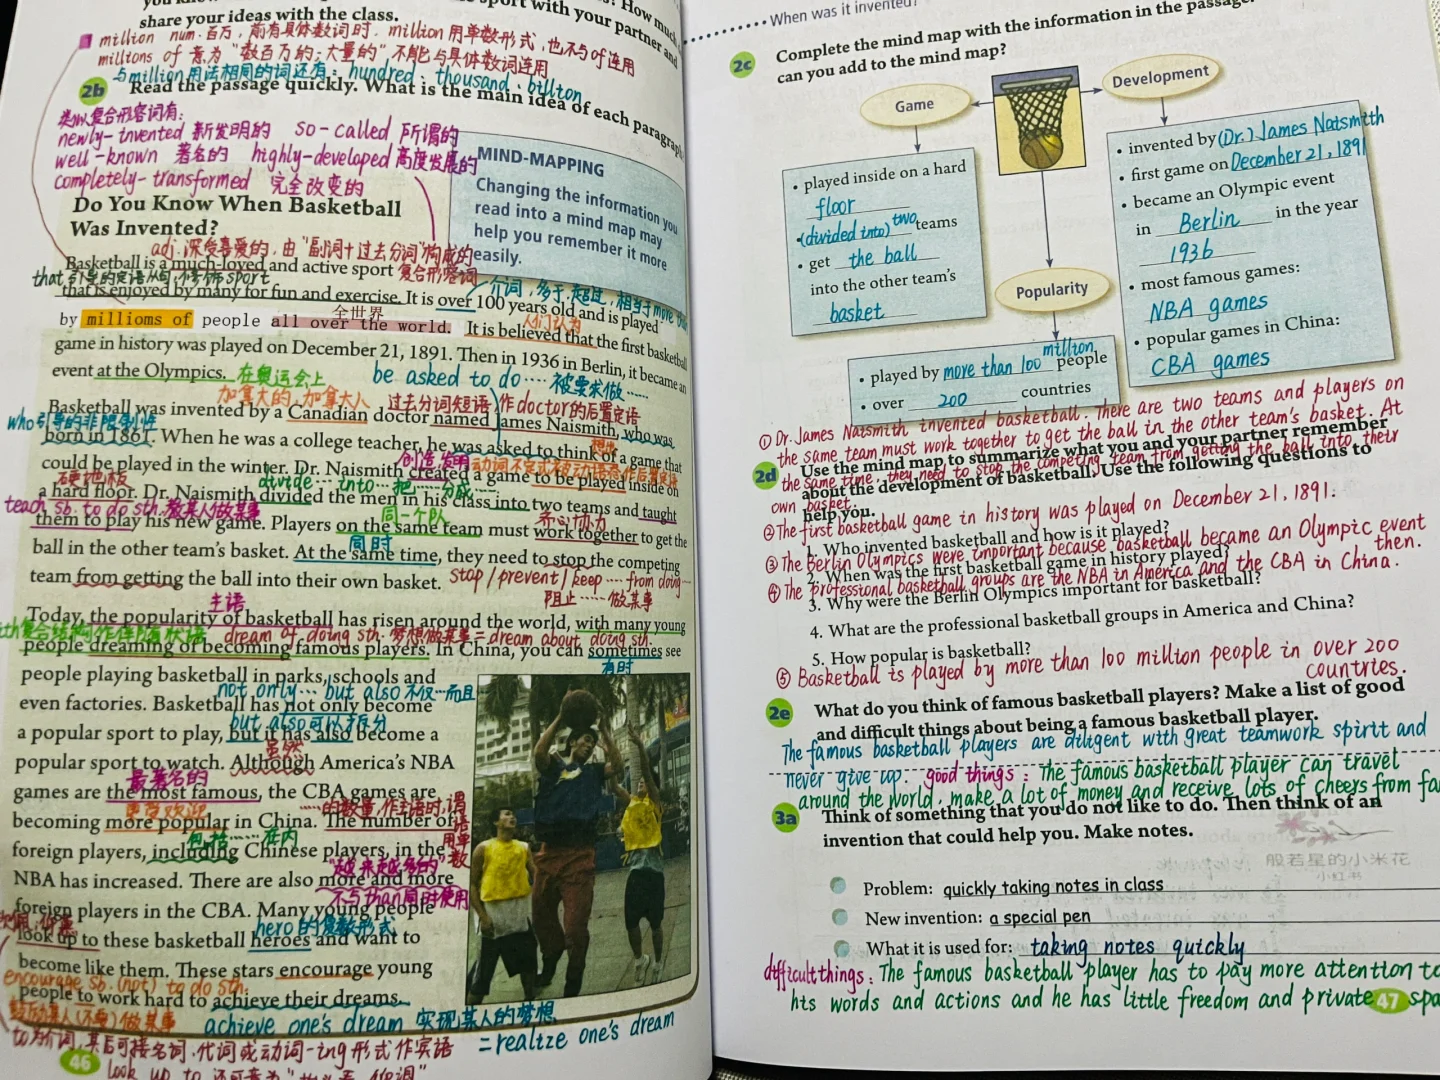 share your ideas with the class.
million num. 百万, 前有具体数词时, million 用单数形式, 也不与of连用
millions of 意为“数百万的; 大量的” 不能与具体数词连用
与million用法相同的词还有: hundred、thousand、billion
2b Read the passage quickly. What is the main idea of each paragraph
类似复合形容词有:
newly-invented 新发明的 so-called 所谓的
well-known 著名的 highly-developed 高度发展的
completely-transformed 完全改变的
MIND-MAPPING
Changing the information you
read into a mind map may
help you remember it more
easily.
Do You Know When Basketball
Was Invented?
adj. 深受喜爱的, 由“副词+过去分词”构成的
复合形容词
Basketball is a much-loved and active sport
that引导的定语从句, 修饰sport
that is enjoyed by many for fun and exercise. It is over 100 years old and is played
介词, 多于, 超过, 相当于more than
全世界
人们认为
by millioms of people all over the world. It is believed that the first basketball
game in history was played on December 21, 1891. Then in 1936 in Berlin, it became an
event at the Olympics. 在奥运会上 be asked to do…… 被要求做……
加拿大的, 加拿大人 过去分词短语作doctor的后置定语
Basketball was invented by a Canadian doctor named James Naismith, who was
who引导的非限制性
born in 1861. When he was a college teacher, he was asked to think of a game that
想出
could be played in the winter. Dr. Naismith created a game to be played inside on
创造发明
硬地板 divide…into…把……分成……
a hard floor. Dr. Naismith divided the men in his class into two teams and taught
teach sb. to do sth. 教某人做某事
them to play his new game. Players on the same team must work together to get the
同一个队 齐心协力
同时
ball in the other team's basket. At the same time, they need to stop the competing
team from getting the ball into their own basket. stop/prevent/keep……from doing……
阻止……做某事
主语
Today, the popularity of basketball has risen around the world, with many young
with复合结构作伴随状语 dream of doing sth. 梦想做某事=dream about doing sth.
people dreaming of becoming famous players. In China, you can sometimes see
有时
people playing basketball in parks, schools and
not only…but also 不仅…而且
even factories. Basketball has not only become
but also可以拆分
a popular sport to play, but it has also become a
虽然
popular sport to watch. Although America's NBA
最著名的
games are the most famous, the CBA games are
更受欢迎 ……的数量, 作主语时, 谓语用单数
becoming more popular in China. The number of
包括……在内
foreign players, including Chinese players, in the
“越来越多的”
NBA has increased. There are also more and more
不与than同时使用
foreign players in the CBA. Many young people
hero的复数形式
look up to these basketball heroes and want to
become like them. These stars encourage young
encourage sb. (not) to do sth.
people to work hard to achieve their dreams.
鼓励某人(不要)做某事 achieve one's dream 实现某人的梦想
=realize one's dream
to为介词, 其后可接名词、代词或动词-ing形式作宾语
46
When was it invented?
2c Complete the mind map with the information in the passage.
can you add to the mind map?
Game
Development
Popularity
• played inside on a hard
floor
• (divided into) two teams
• get the ball
into the other team's
basket
• invented by (Dr.) James Naismith
• first game on December 21, 1891
• became an Olympic event
in Berlin in the year
1936
• most famous games:
NBA games
• popular games in China:
CBA games
• played by more than 100 million people
• over 200 countries
① Dr. James Naismith invented basketball. There are two teams and players on
the same team must work together to get the ball in the other team's basket. At
the same time, they need to stop the competing team from getting the ball into their
own basket.
2d Use the mind map to summarize what you and your partner remember
about the development of basketball. Use the following questions to
help you.
② The first basketball game in history was played on December 21, 1891.
1. Who invented basketball and how is it played?
③ The Berlin Olympics were important because basketball became an Olympic event
then.
2. When was the first basketball game in history played?
④ The professional basketball groups are the NBA in America and the CBA in China.
3. Why were the Berlin Olympics important for basketball?
4. What are the professional basketball groups in America and China?
5. How popular is basketball?
⑤ Basketball is played by more than 100 million people in over 200
countries.
2e What do you think of famous basketball players? Make a list of good
and difficult things about being a famous basketball player.
The famous basketball players are diligent with great teamwork spirit and
never give up. good things: The famous basketball player can travel
around the world, make a lot of money and receive lots of cheers from fa
3a Think of something that you do not like to do. Then think of an
invention that could help you. Make notes.
般若星的小米花
小红书
Problem: quickly taking notes in class
New invention: a special pen
What it is used for: taking notes quickly
difficult things: The famous basketball player has to pay more attention to
his words and actions and he has little freedom and private spa
47